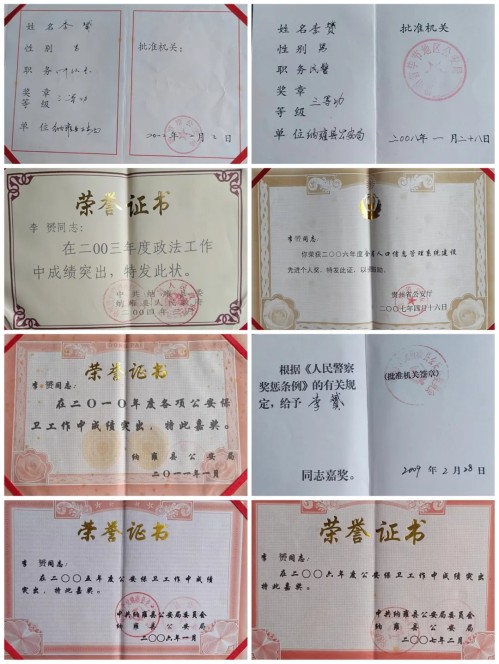 姓名 李赟
性别 男
职务
奖章
等级 三等功
单位
批准机关：
姓名 李赟
性别 男
职务 民警
奖章
等级 三等功
单位 纳雍县公安局
批准机关
二〇〇八年一月二十八日
荣誉证书
李赟同志：
在二〇〇三年度政法工作
中成绩突出，特发此状。
中共纳雍县委
纳雍县人民政府
二〇〇四年二月
李赟同志：
你荣获二〇〇六年度全省人口信息管理系统建设
先进个人奖，特发此证，以资鼓励。
贵州省公安厅
二〇〇七年四月十六日
荣誉证书
李赟同志：
在二〇一〇年度各项公安保
卫工作中成绩突出，特此嘉奖。
纳雍县公安局
二〇一一年一月
根据《人民警察
奖惩条例》的有关规
定，给予 李赟
同志嘉奖。
(批准机关签章)
2009 年 2 月 28 日
荣誉证书
李赟同志：
在二〇〇五年度公安保卫工作中成绩
突出，特此嘉奖。
中共纳雍县公安局委员会
纳雍县公安局
二〇〇六年一月
荣誉证书
李赟同志：
在二〇〇六年度公安保卫工作中成绩突出，
特此嘉奖。
中共纳雍县公安局委员会
纳雍县公安局
二〇〇七年二月